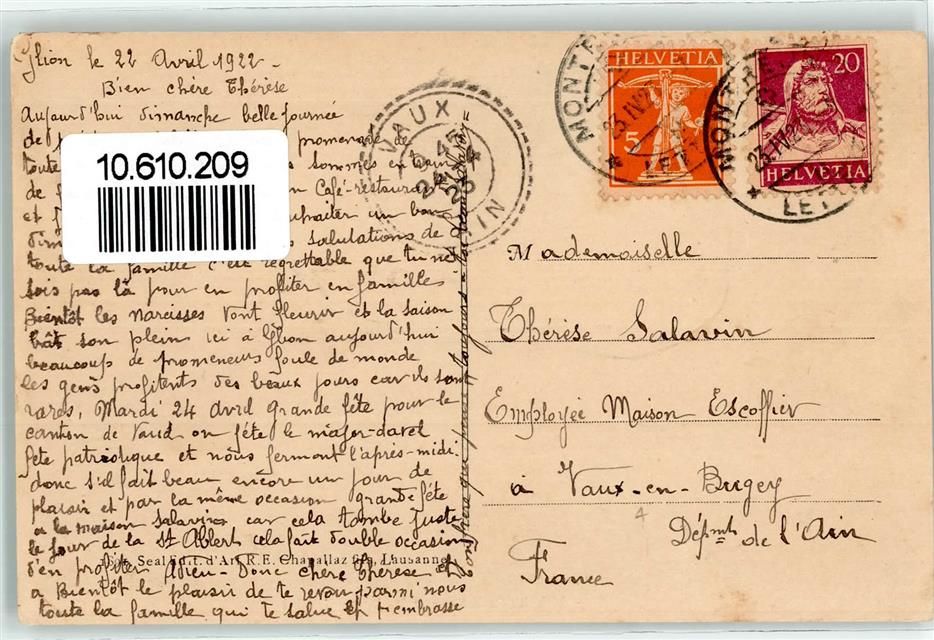 Glion le 22 Avril 1922-
Bien chère Thérèse
Aujourd'hui dimanche belle journée
de promenade de
toute sommes en train
de Café-restaurant
et souhaiter un bon
dim salutations de
toute la famille c'est regrettable que tu ne
sois pas là pour en profiter en familles
Bientôt les narcisses vont fleurir et la saison
bât son plein ici à Glion aujourd'hui
beaucoup de promeneurs foule de monde
les gens profitents des beaux jours car ils sont
rares, Mardi 24 Avril grande fête pour le
canton de Vaud on fête le major-davel
fête patriotique et nous fermont l'après-midi
donc s'il fait beau encore un jour de
plaisir et par la même occasion grande fête
a la maison Salavin car cela tombe juste
le jour de la St Albert cela fait double occasion
d'en profiter Adieu- Donc chère Thérèse et
a Bientôt le plaisir de te revoir parmi nous
toute la famille qui te salue et t'embrasse
10.610.209
VAUX
AIN
HELVETIA
5
20
HELVETIA
MONTREUX
LETT
23.IV.2
MONTREUX
LETT
23.IV.2
Mademoiselle
Thérèse Salavin
Employée Maison Escoffier
à Vaux-en-Bugey
Dépmt de l'Ain
France
Seal Edit. d'Art R.E. Chapallaz fils, Lausanne